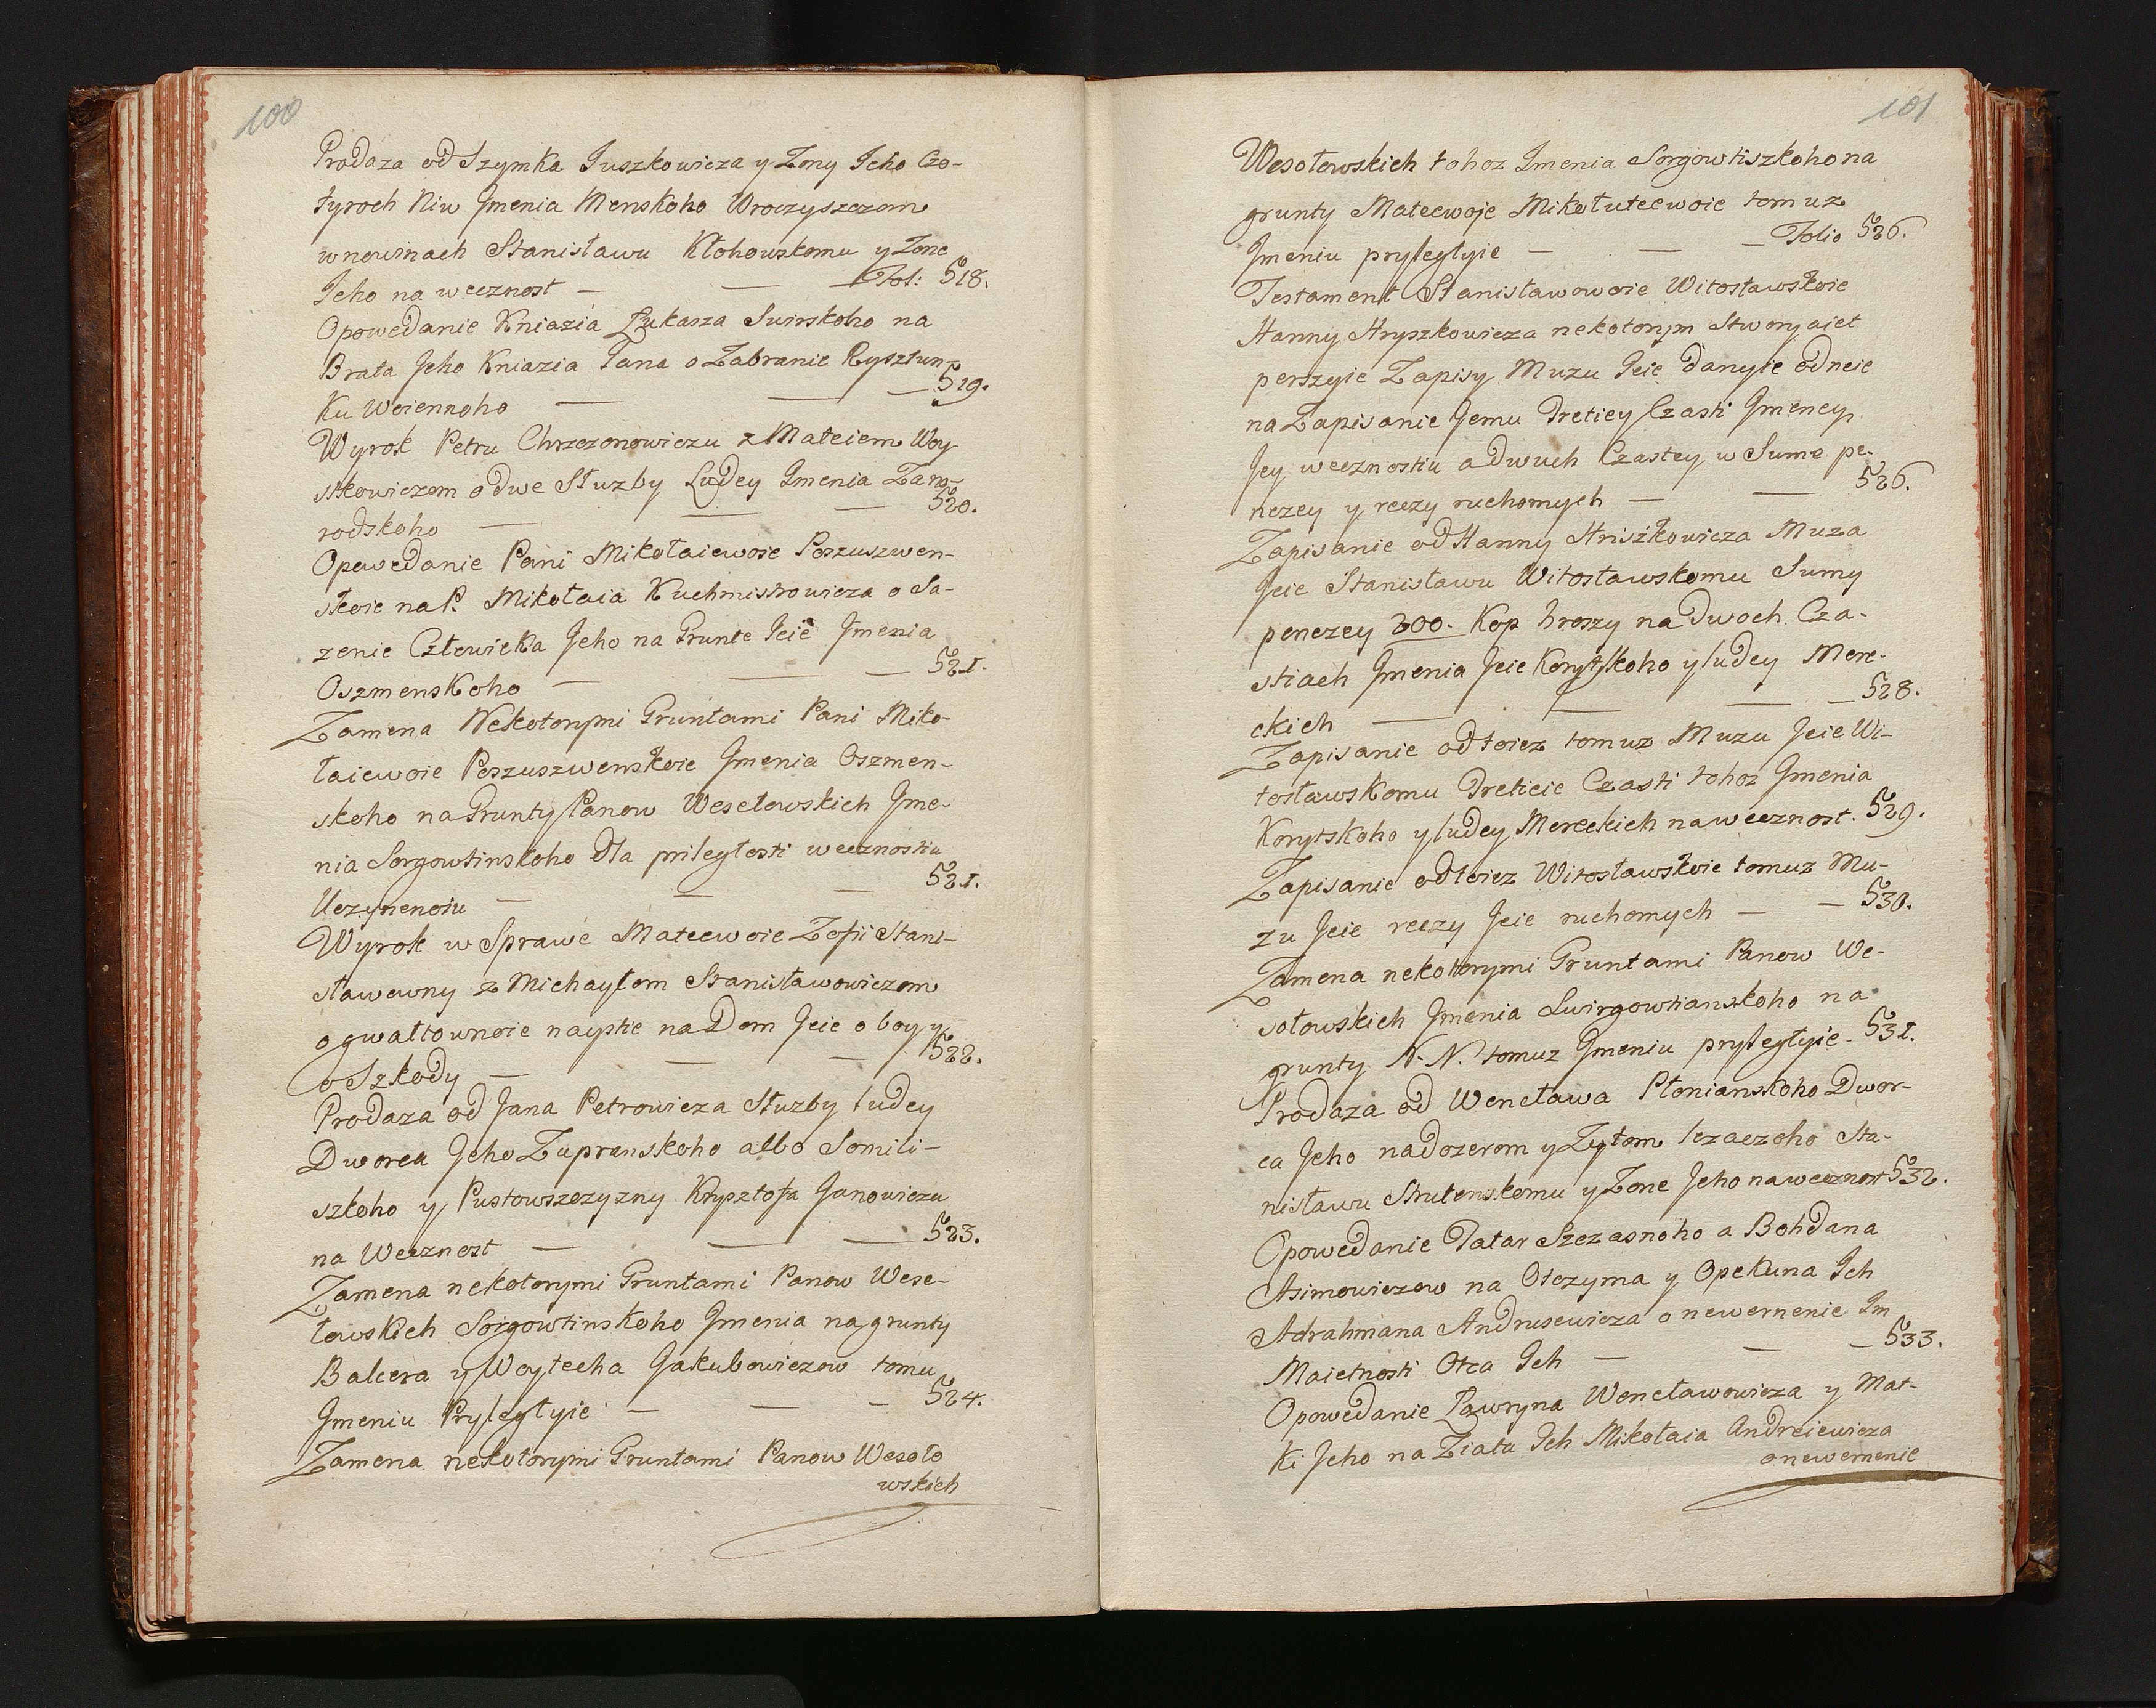 100
Prodaza od Szymka Juszkowicza y Zony Jeho Czo-
tyroch Niw Jmenia Menskoho Uroczyszczom
w nowinach Stanisławu Kłohowskomu y Zone
Jeho na wecznost — — — Fol: 518.
Opowedanie Kniazia Łukasza Swirskoho na
Brata Jeho Kniazia Jana o Zabranie Rysztun-
Ku Woiennoho — — — 519.
Wyrok Petru Chrzczonowiczu z Mateiem Woy-
stkowiczom o dwe Słuzby Ludey Jmenia Zano-
rodskoho — — — 520.
Opowedanie Pani Mikołaiewoie Poszuszwen-
skoie na P. Mikołaia Kuchmistrowicza o Sa-
zenie Człowieka Jeho na Grunte Jeie Jmenia
Oszmenskoho — — — 521.
Zamena Nekotorymi Gruntami Pani Miko-
łaiewoie Poszuszwenskoie Jmenia Oszmen-
skoho na Grunty Panow Wesełowskich Jme-
nia Sorgowtinskoho dla priległosti wecznostiu
Uczynenoiu — — — 521.
Wyrok w Sprawe Mateewoie Zofii Stani-
sławowny z Michayłom Stanisławowiczom
o gwałtownoie nayście na Dom Jeie o boy y
o Szkody — — — 522.
Prodaza od Jana Petrowicza Słuzby ludey
Dworca Jeho Zupranskoho albo Somili-
szkoho y Pustowszczyzny Krysztofu Janowiczu
na Wecznost — — — 523.
Zamena nekotorymi Gruntami Panow Wese-
łowskich Sorgowtinskoho Jmenia na grunty
Balcera y Woytecha Jakubowiczow tomu
Jmeniu Pryległyie — — — 524.
Zamena nekotorymi Gruntami Panow Wesoło
wskich
101
Wesołowskich tohoz Jmenia Sorgowtiszkoho na
grunty Mateewoje Mikołutcewoie tomuz
Jmeniu pryległyie — — — Folio 526.
Testament Stanisławowoie Witosławskoie
Hanny Hryszkowicza nekotorym Stworyaiet
perszyie Zapisy Muzu Jeie danyie od neie
na Zapisanie Jemu Tretiey Czasti Jmeney
Jey wecznostiu a dwuch Czastey w Sume pe-
nezey y reczy ruchomych — — 526.
Zapisanie od Hanny Hriszkowicza Muza
Jeie Stanisławu Witosławskomu Sumy
penezey 200. Kop hroszy na Dwoch Cza-
stiach Jmenia Jeie Korytskoho y ludey Mere-
ckich — — — — 528.
Zapisanie od toiez tomuz Muzu Jeie Wi-
tosławskomu Treticie Czasti tohoz Jmenia
Korytskoho y ludey Mereckich na wecznost. 529.
Zapisanie od toiez Witosławskoie tomuz Mu-
zu Jeie reczy Jeie ruchomych — — 530.
Zamena nekotorymi Gruntami Panow We-
sołowskich Jmenia Swirgowtianskoho na
grunty N. N. tomuz Jmeniu pryległyie. 531.
Prodaza od Wencława Płonianskoho Dwor-
ca Jeho nad ozerom y Zytom lezaczoho Sta-
nisławu Strutenskomu y Zone Jeho na wecznost 532.
Opowedanie Tatar Szczasnoho a Bohdana
Asimowiczow na Otczyma y Opekuna Jch
Adrahmana Andrusewicza o newernenie Jm
Maietnosti Otca Jch — — — 533.
Opowedanie Ławryna Wencławowicza y Mat-
Ki Jeho na Ziatia Jch Mikołaia Andreiewicza
o newernenie